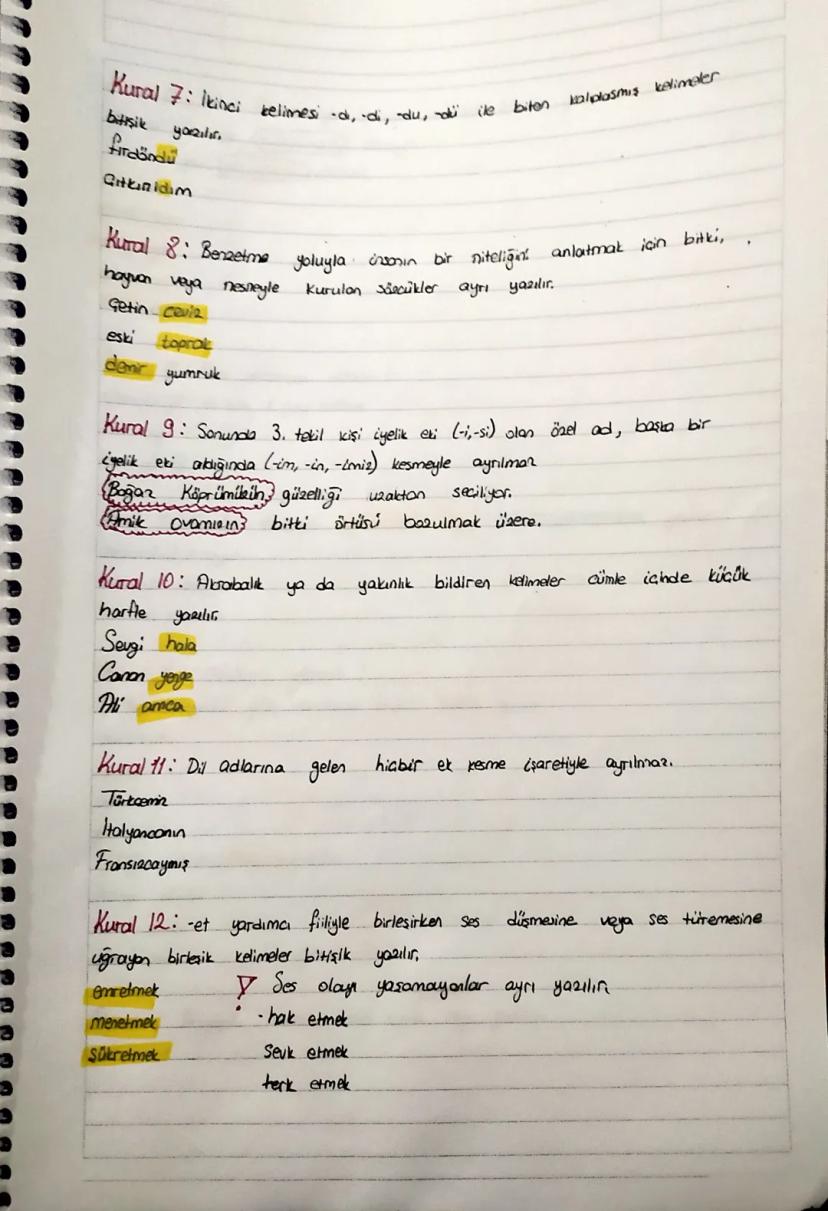 Kural 7: İkinci kelimesi -dı, -di, -du, -dü ile biten kalıplaşmış kelimeler
bitişik yazılır.
fırdöndü
Çıtkırıldım
Kural 8: Benzetme yoluyla insanın bir niteliğini anlatmak için bitki,
hayvan veya nesneyle kurulan sözcükler ayrı yazılır.
Çetin ceviz
eski toprak
demir yumruk
Kural 9: Sonunda 3. tekil kişi iyelik eki (-i,-si) olan özel ad, başka bir
iyelik eki aldığında (-im, -in, -imiz) kesmeyle ayrılmaz
Boğaz Köprümüzün güzelliği uzaktan seçiliyor.
Amik Ovamızın bitki örtüsü bozulmak üzere.
Kural 10: Akrabalık ya da yakınlık bildiren kelimeler cümle içinde küçük
harfle yazılır.
Sevgi hala
Canan yenge
Ali amca
Kural 11: Dil adlarına gelen hiçbir ek kesme işaretiyle ayrılmaz.
Türkçemiz
İtalyancanın
Fransızcaymış
Kural 12: -et yardımcı fiiliyle birleşirken ses düşmesine veya ses türemesine
uğrayan birleşik kelimeler bitişik yazılır.
emretmek ! Ses olayı yaşamayanlar ayrı yazılır.
menetmek - hak etmek
şükretmek sevk etmek
terk etmek